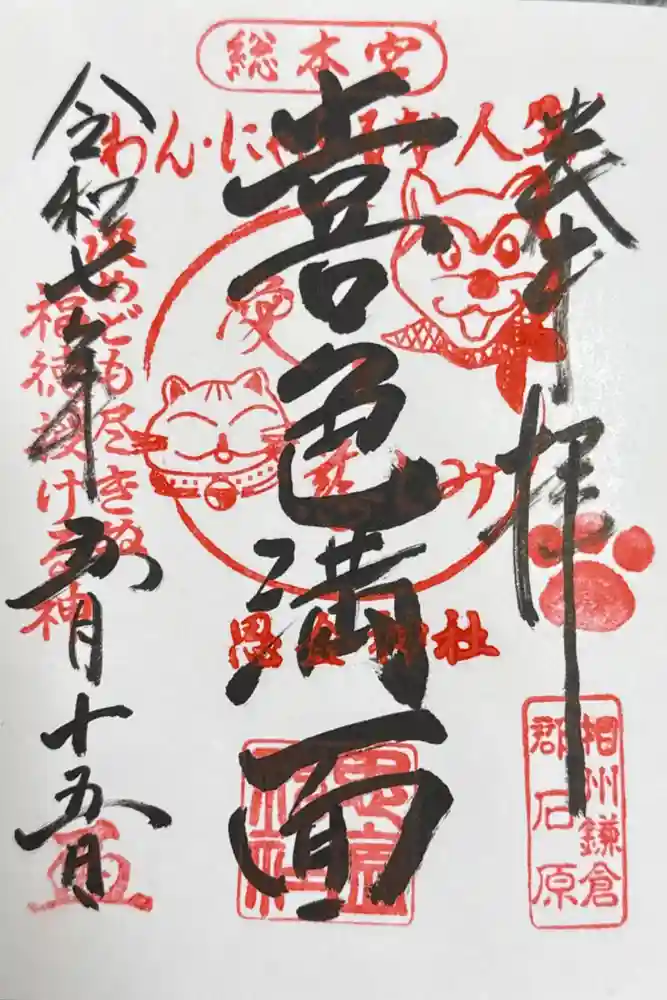 総本宮
奉拝
相州鎌倉
郡石原
喜色満面
思金神社
汲めども尽きぬ
福徳授ける神
令和七年五月十五日